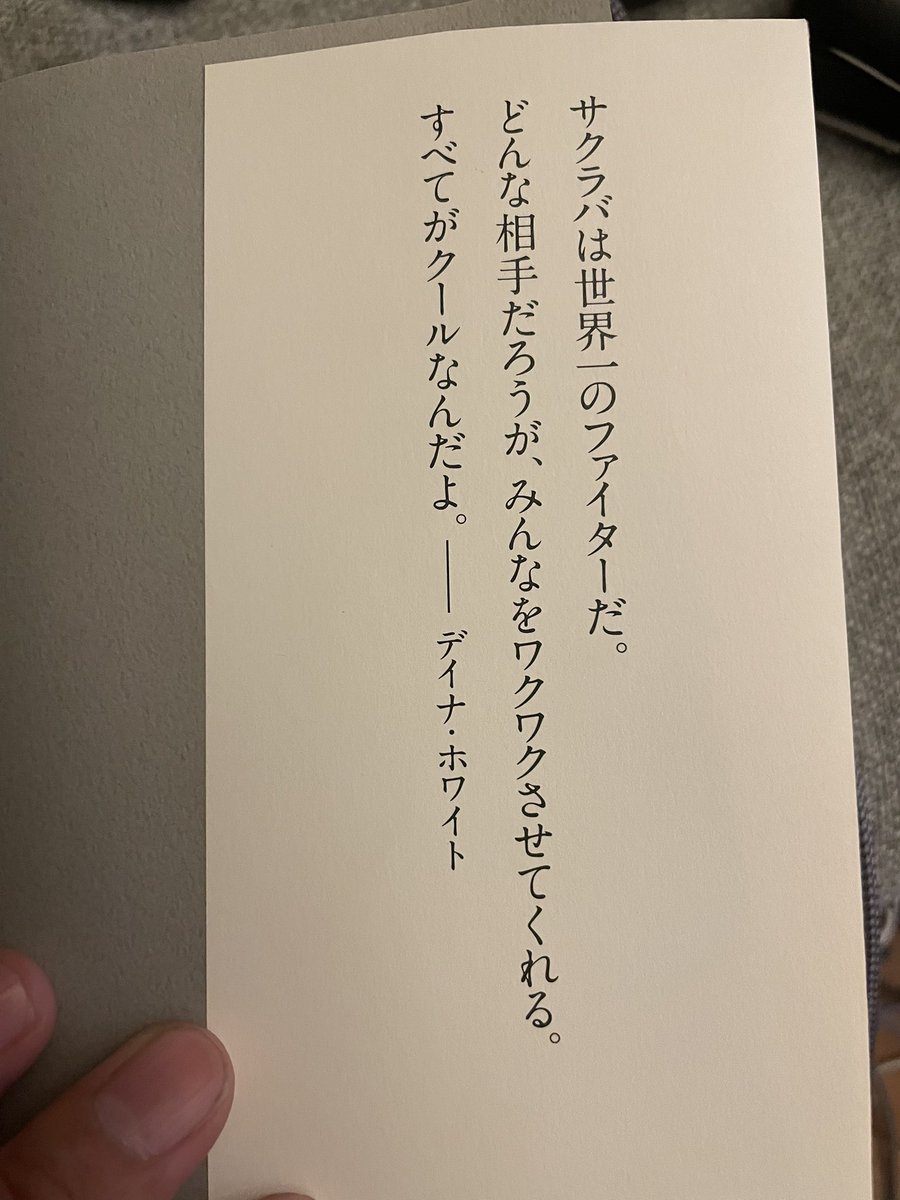 サクラバは世界一のファイターだ。
どんな相手だろうが、みんなをワクワクさせてくれる。
すべてがクールなんだよ。── デイナ・ホワイト